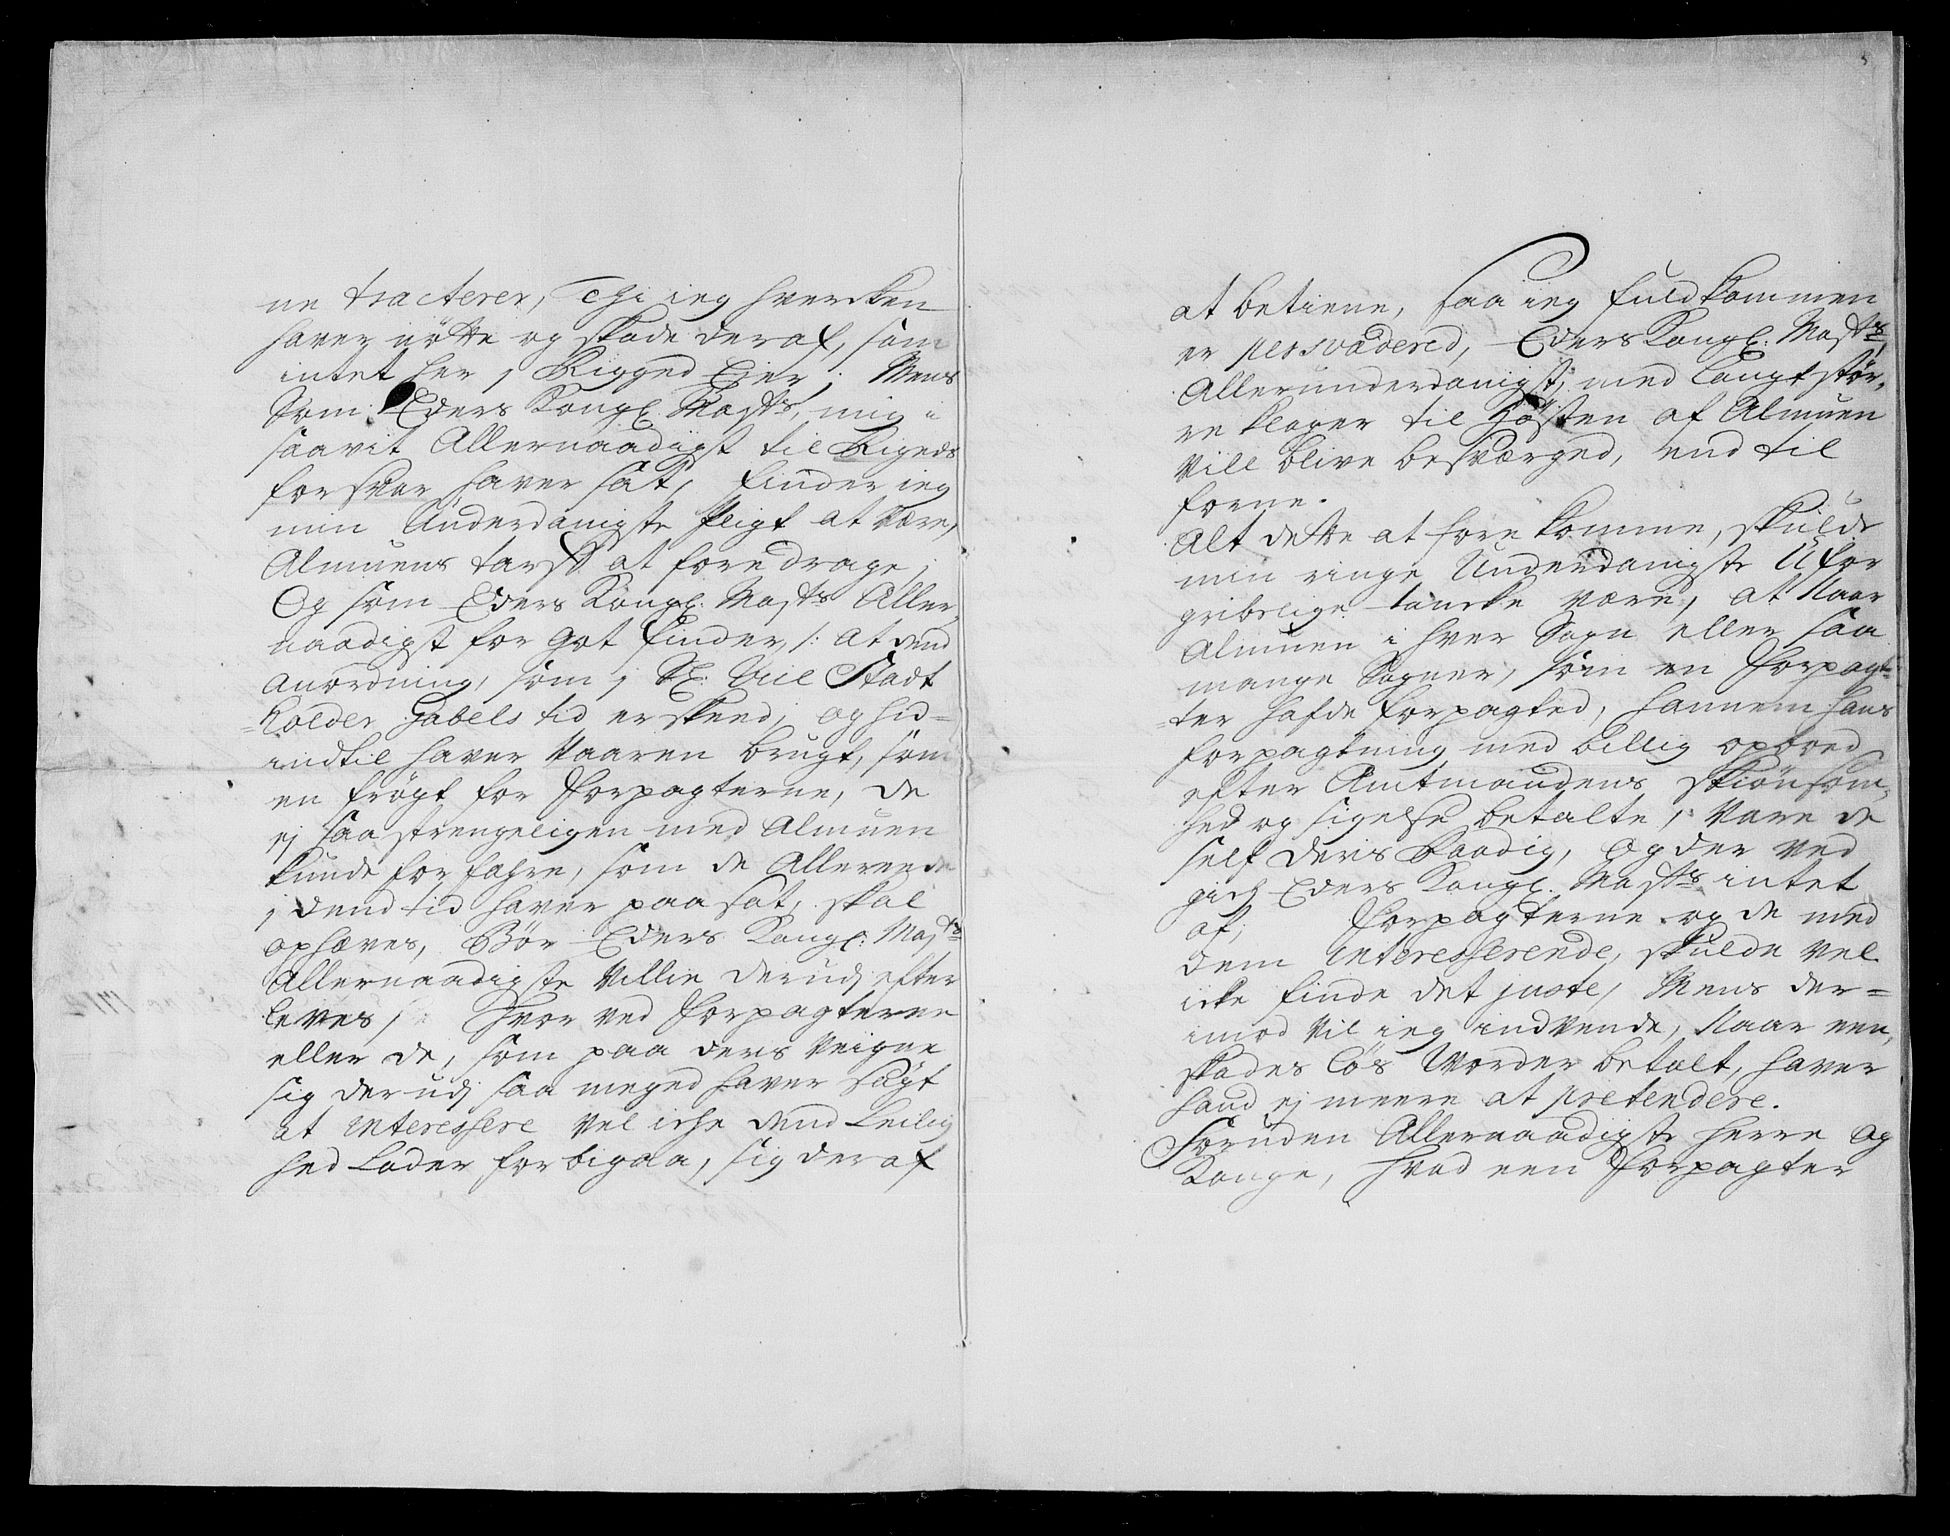 ne tracterer, Thi ieg hvercken
haver nötte og skade deraf, som
intet her i Rigged Ejer; Mens
Som Eders Kongl. Maÿtts, mig i
saavit Allernaadigst til Rigeds
forsvar haver sat, finder ieg
min Underdanigste Pligt at være,
Almuens tarff at foredrage,
Og som Eders Kongl. Maÿtts Aller
naadigst for got finder, /: at dend
anordning, som i Sl: Vice Stadt
holder Gabels tid er skeed, og hid=
indtil haver Vaaren brugt, som
en frögt for Forpagterne, de
ej saa strengeligen med Almuen
kunde forfahre, som de Allerede
i dend tid haver paasat, skal
ophæves, Bör Eders Kongl: Maÿtts
Allernaadigste Villie derudj efter
leves, Hvor ved Forpagterne
eller de, som paa deris Veigne
sig derudj saa meged haver sögt
at interessere vel icke dend Leilig
hed Lader forbigaa, sig deraf
at betiene, saa ieg fuldkommen
er persvadered, Eders Kongl: Maÿtts
Allerunderdanigst, med langt stör,
re klager til Hösten af Almuen
Vill blive besværged, end til
forne.
Alt dette at forekomme, skulde
min ringe Underdanigste Ufor
gribelige tancke være, at Naar
Almuen i hver Sogn eller saa
mange Sogner, som en Forpagt
ter hafde forpagted, hannem hans
forpagtning med billig opbøed
efter Amtmandens skiönsom,
hed og sigelse betalte, Vare de
self deris Raadig, og der ved
gick Eders Kongl. Maÿtts intet
af, Forpagterne og de med
dem interesserende, skulde vel
icke finde det juste, Mens der=
imod vil ieg indvende, Naar een,
skades lös Worder betalt, haver
hand ej meere at pretendere.
Foruden Allernaadigste Herre Og
Konge, Hvad een Forpagter